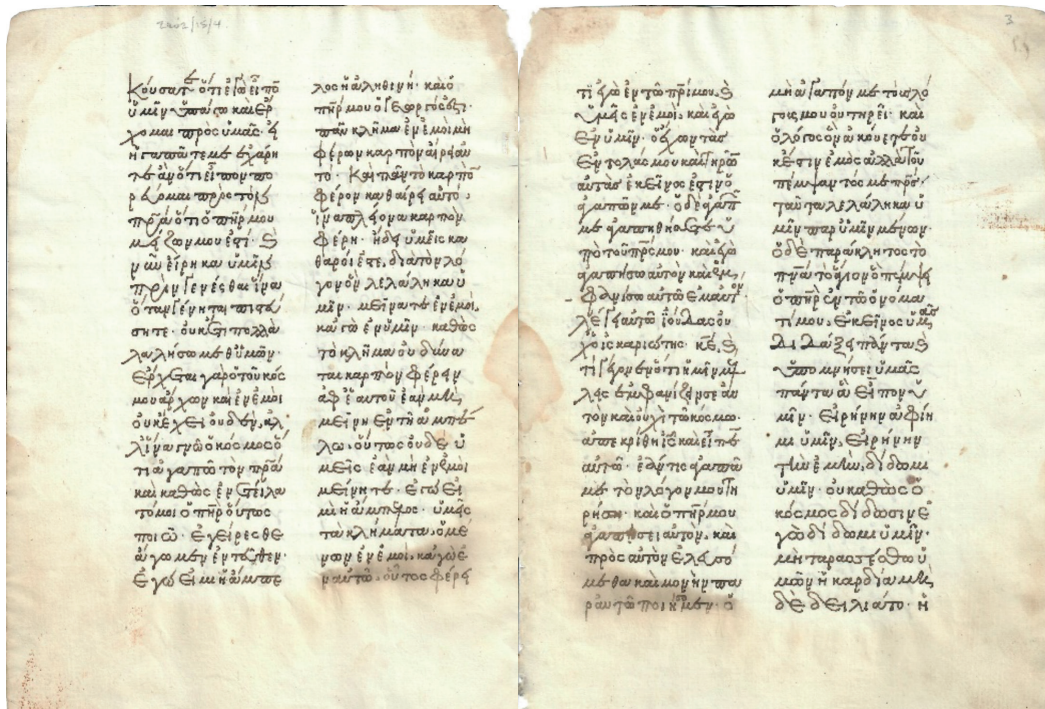 κούσατε ὅτι ἐγὼ εἶπο
ὑμῖν ὑπάγω καὶ ἔρ
χομαι πρὸς ὑμᾶς· εἰ
ἠγαπᾶτέ με ἐχάρη
τε ἂν ὅτι εἶπον πο
ρεύομαι πρὸς τὸν
πρ̅α ὅτι ὁ πη̅ρ μου
μείζων μου ἐστί· ϗ
νῦν εἴρηκα ὑμῖν
πρὶν γενέσθαι ἵνα
ὅταν γένηται πιστεύ
σητε· οὐκέτι πολλὰ
λαλήσω μεθ' ὑμῶν·
ἔρχεται γὰρ ὁ τοῦ κόσ
μου ἄρχων καὶ ἐν ἐμοὶ
οὐκ ἔχει οὐδέν, ἀλ
λ' ἵνα γνῷ ὁ κόσμος ὅ
τι ἀγαπῶ τὸν πρ̅α
καὶ καθὼς ἐνετείλα
τό μοι ὁ πη̅ρ οὕτως
ποιῶ· ἐγείρεσθε
ἄγωμεν ἐντεῦθεν·
Ἐγώ εἰμι ἡ ἄμπε
λος ἡ ἀληθινή· καὶ ὁ
πη̅ρ μου ὁ γεωργός ἐστι·
πᾶν κλῆμα ἐν ἐμοὶ μὴ
φέρων καρπὸν αἴρει αὐ
τό· καὶ πᾶν τὸ καρπὸ
φέρον καθαίρει αὐτό·
ἵνα πλείονα καρπὸν
φέρῃ· ἤδη ὑμεῖς κα
θαροί ἐστε, διὰ τὸν λό
γον ὃν λελάληκα ὑ
μῖν· μείνατε ἐν ἐμοὶ
κἀγὼ ἐν ὑμῖν· καθὼς
τὸ κλῆμα οὐ δύνα
ται καρπὸν φέρειν
ἀφ' ἑαυτοῦ ἐὰν μὴ
μείνῃ ἐν τῇ ἀμπέ
λῳ· οὕτως οὐδὲ ὑ
μεῖς ἐὰν μὴ ἐν ἐμοὶ
μείνητε· Ἐγώ εἰ
μι ἡ ἄμπελος· ὑμεῖς
τὰ κλήματα· ὁ μέ
νων ἐν ἐμοὶ, κἀγὼ ἐ
ν αὐτῷ· οὗτος φέρει
3
τι ἐγὼ ἐν τῷ πρ̅ι μου, ϗ
ὑμεῖς ἐν ἐμοί· κἀγὼ
ἐν ὑμῖν· ὁ ἔχων τὰς
ἐντολάς μου καὶ τηρῶν
αὐτὰς ἐκεῖνός ἐστιν ὁ
ἀγαπῶν με· ὁ δὲ ἀγαπῶν
με ἀγαπηθήσεται ὑ
πὸ τοῦ πρ̅ς μου· καὶ ἐγὼ
ἀγαπήσω αὐτὸν καὶ ἐμ
φανίσω αὐτῷ ἐμαυτόν
λέγει αὐτῷ ἰούδας οὐ
χ' ὁ ἰσκαριώτης· κ̅ε, ϗ
τί γέγονεν ὅτι ἡμῖν μέλ
λεις ἐμφανίζειν σεαυ
τὸν καὶ οὐχὶ τῷ κόσμω·
ἀπεκρίθη ι̅ς καὶ εἶπεν
αὐτῷ· ἐάν τις ἀγαπᾷ
με τὸν λόγον μου τη
ρήσει· καὶ ὁ πη̅ρ μου
ἀγαπήσει αὐτὸν, καὶ
πρὸς αὐτὸν ἐλευσό
μεθα καὶ μονὴν πα
ρ' αὐτῷ ποιήσομεν· ὁ
μὴ ἀγαπῶν με τοὺς λό
γους μου οὐ τηρεῖ· καὶ
ὁ λόγος ὃν ἀκούετε οὐ
κ ἔστιν ἐμὸς ἀλλὰ τοῦ
πέμψαντός με πρ̅ς·
ταῦτα λελάληκα ὑ
μῖν παρ' ὑμῖν μένων·
ὁ δὲ παράκλητος τὸ
πν̅α τὸ ἅγιον ὃ πέμψει
ὁ πη̅ρ ἐν τῷ ὀνόμα
τί μου, ἐκεῖνος ὑμᾶς
διδάξει πάντα ϗ
ὑπομνήσει ὑμᾶς
πάντα ἃ εἶπον ὑ
μῖν· εἰρήνην ἀφίη
μι ὑμῖν, εἰρήνην
τὴν ἐμὴν, δίδωμι
ὑμῖν· οὐ καθὼς ὁ
κόσμος δίδωσιν ἐ
γὼ δίδωμι ὑμῖν·
μὴ ταρασσέσθω ὑ
μῶν ἡ καρδία μη
δὲ δειλιάτω· ἠ